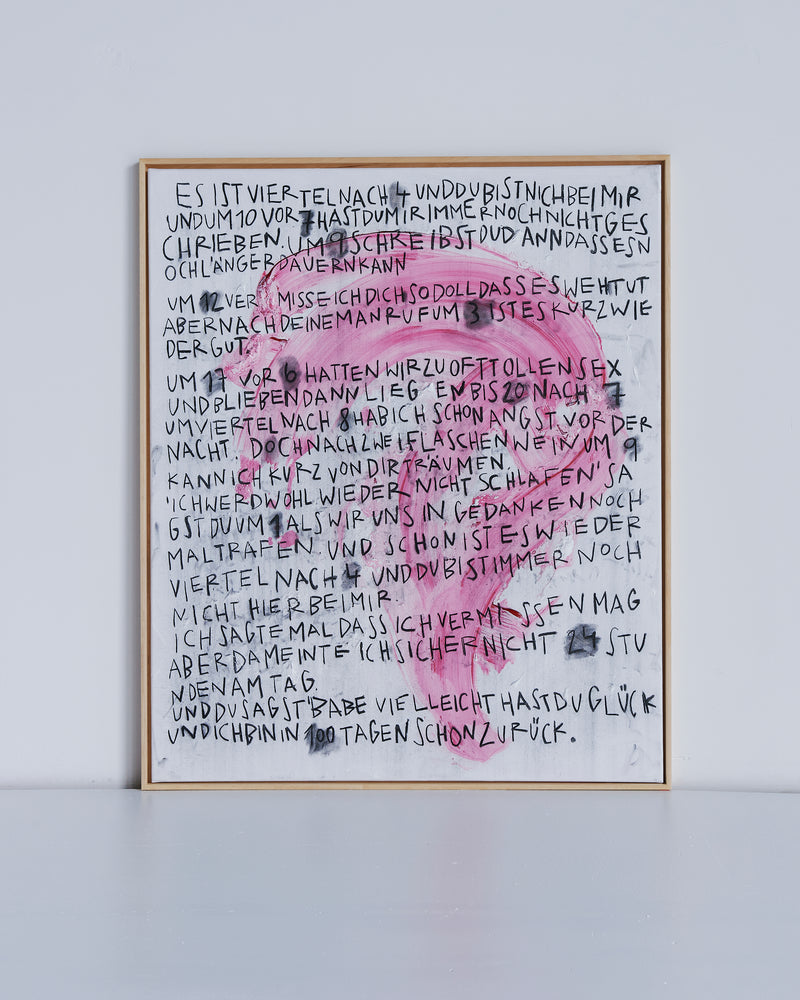 ES IST VIERTEL NACH 4 UND DU BIST NICH BEI MIR
UND UM 10 VOR 7 HAST DU MIR IMMER NOCH NICHT GES
CHRIEBEN. UM 9 SCHREIBST DU DANN DASS ES N
OCH LÄNGER DAUERN KANN
UM 12 VERMISSE ICH DICH SO DOLL DASS ES WEH TUT
ABER NACH DEINEM ANRUF UM 3 IST ES KURZ WIE
DER GUT.
UM 17 VOR 6 HATTEN WIR ZU OFT TOLLEN SEX
UND BLIEBEN DANN LIEGEN BIS 20 NACH 7
UM VIERTEL NACH 8 HAB ICH SCHON ANGST VOR DER
NACHT. DOCH NACH ZWEI FLASCHEN WEIN UM 9
KANN ICH KURZ VON DIR TRÄUMEN.
'ICH WERD WOHL WIEDER NICHT SCHLAFEN' SA
GST DU UM 1 ALS WIR UNS IN GEDANKEN NOCH
MAL TRAFEN. UND SCHON IST ES WIEDER
VIERTEL NACH 4 UND DU BIST IMMER NOCH
NICHT HIER BEI MIR.
ICH SAGTE MAL DASS ICH VERMISSEN MAG
ABER DA MEINTE ICH SICHER NICHT 24 STU
NDEN AM TAG.
UND DU SAGST "BABE VIELLEICHT HAST DU GLÜCK
UND ICH BIN IN 100 TAGEN SCHON ZURÜCK.